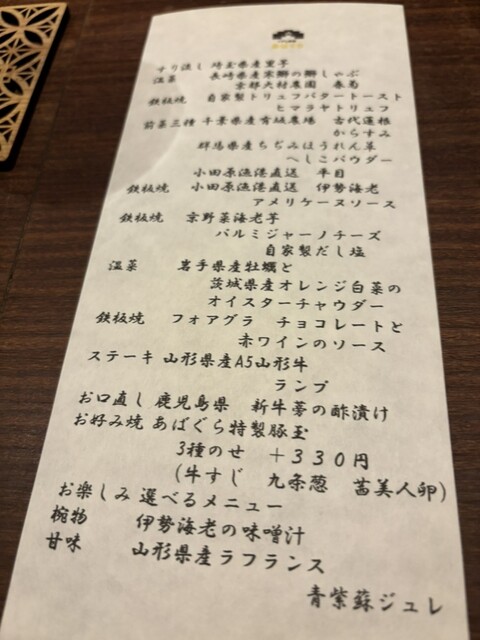 すり流し 埼玉県産里芋
温菜 長崎県産寒鰤の鰤しゃぶ
京都大村農園 春菊
鉄板焼 自家製トリュフバタートースト
ヒマラヤトリュフ
前菜三種 千葉県産育城農場 古代蓮根
からすみ
群馬県産ちぢみほうれん草
へしこパウダー
小田原漁港直送 平目
鉄板焼 小田原漁港直送 伊勢海老
アメリケーヌソース
鉄板焼 京野菜海老芋
パルミジャーノチーズ
自家製だし塩
温菜 岩手県産牡蠣と
茨城県産オレンジ白菜の
オイスターチャウダー
鉄板焼 フォアグラ チョコレートと
赤ワインのソース
ステーキ 山形県産A5山形牛
ランプ
お口直し 鹿児島県 新牛蒡の酢漬け
お好み焼 あばぐら特製豚玉
3種のせ +330円
(牛すじ 九条葱 茜美人卵)
お楽しみ 選べるメニュー
椀物 伊勢海老の味噌汁
甘味 山形県産ラフランス
青紫蘇ジュレ